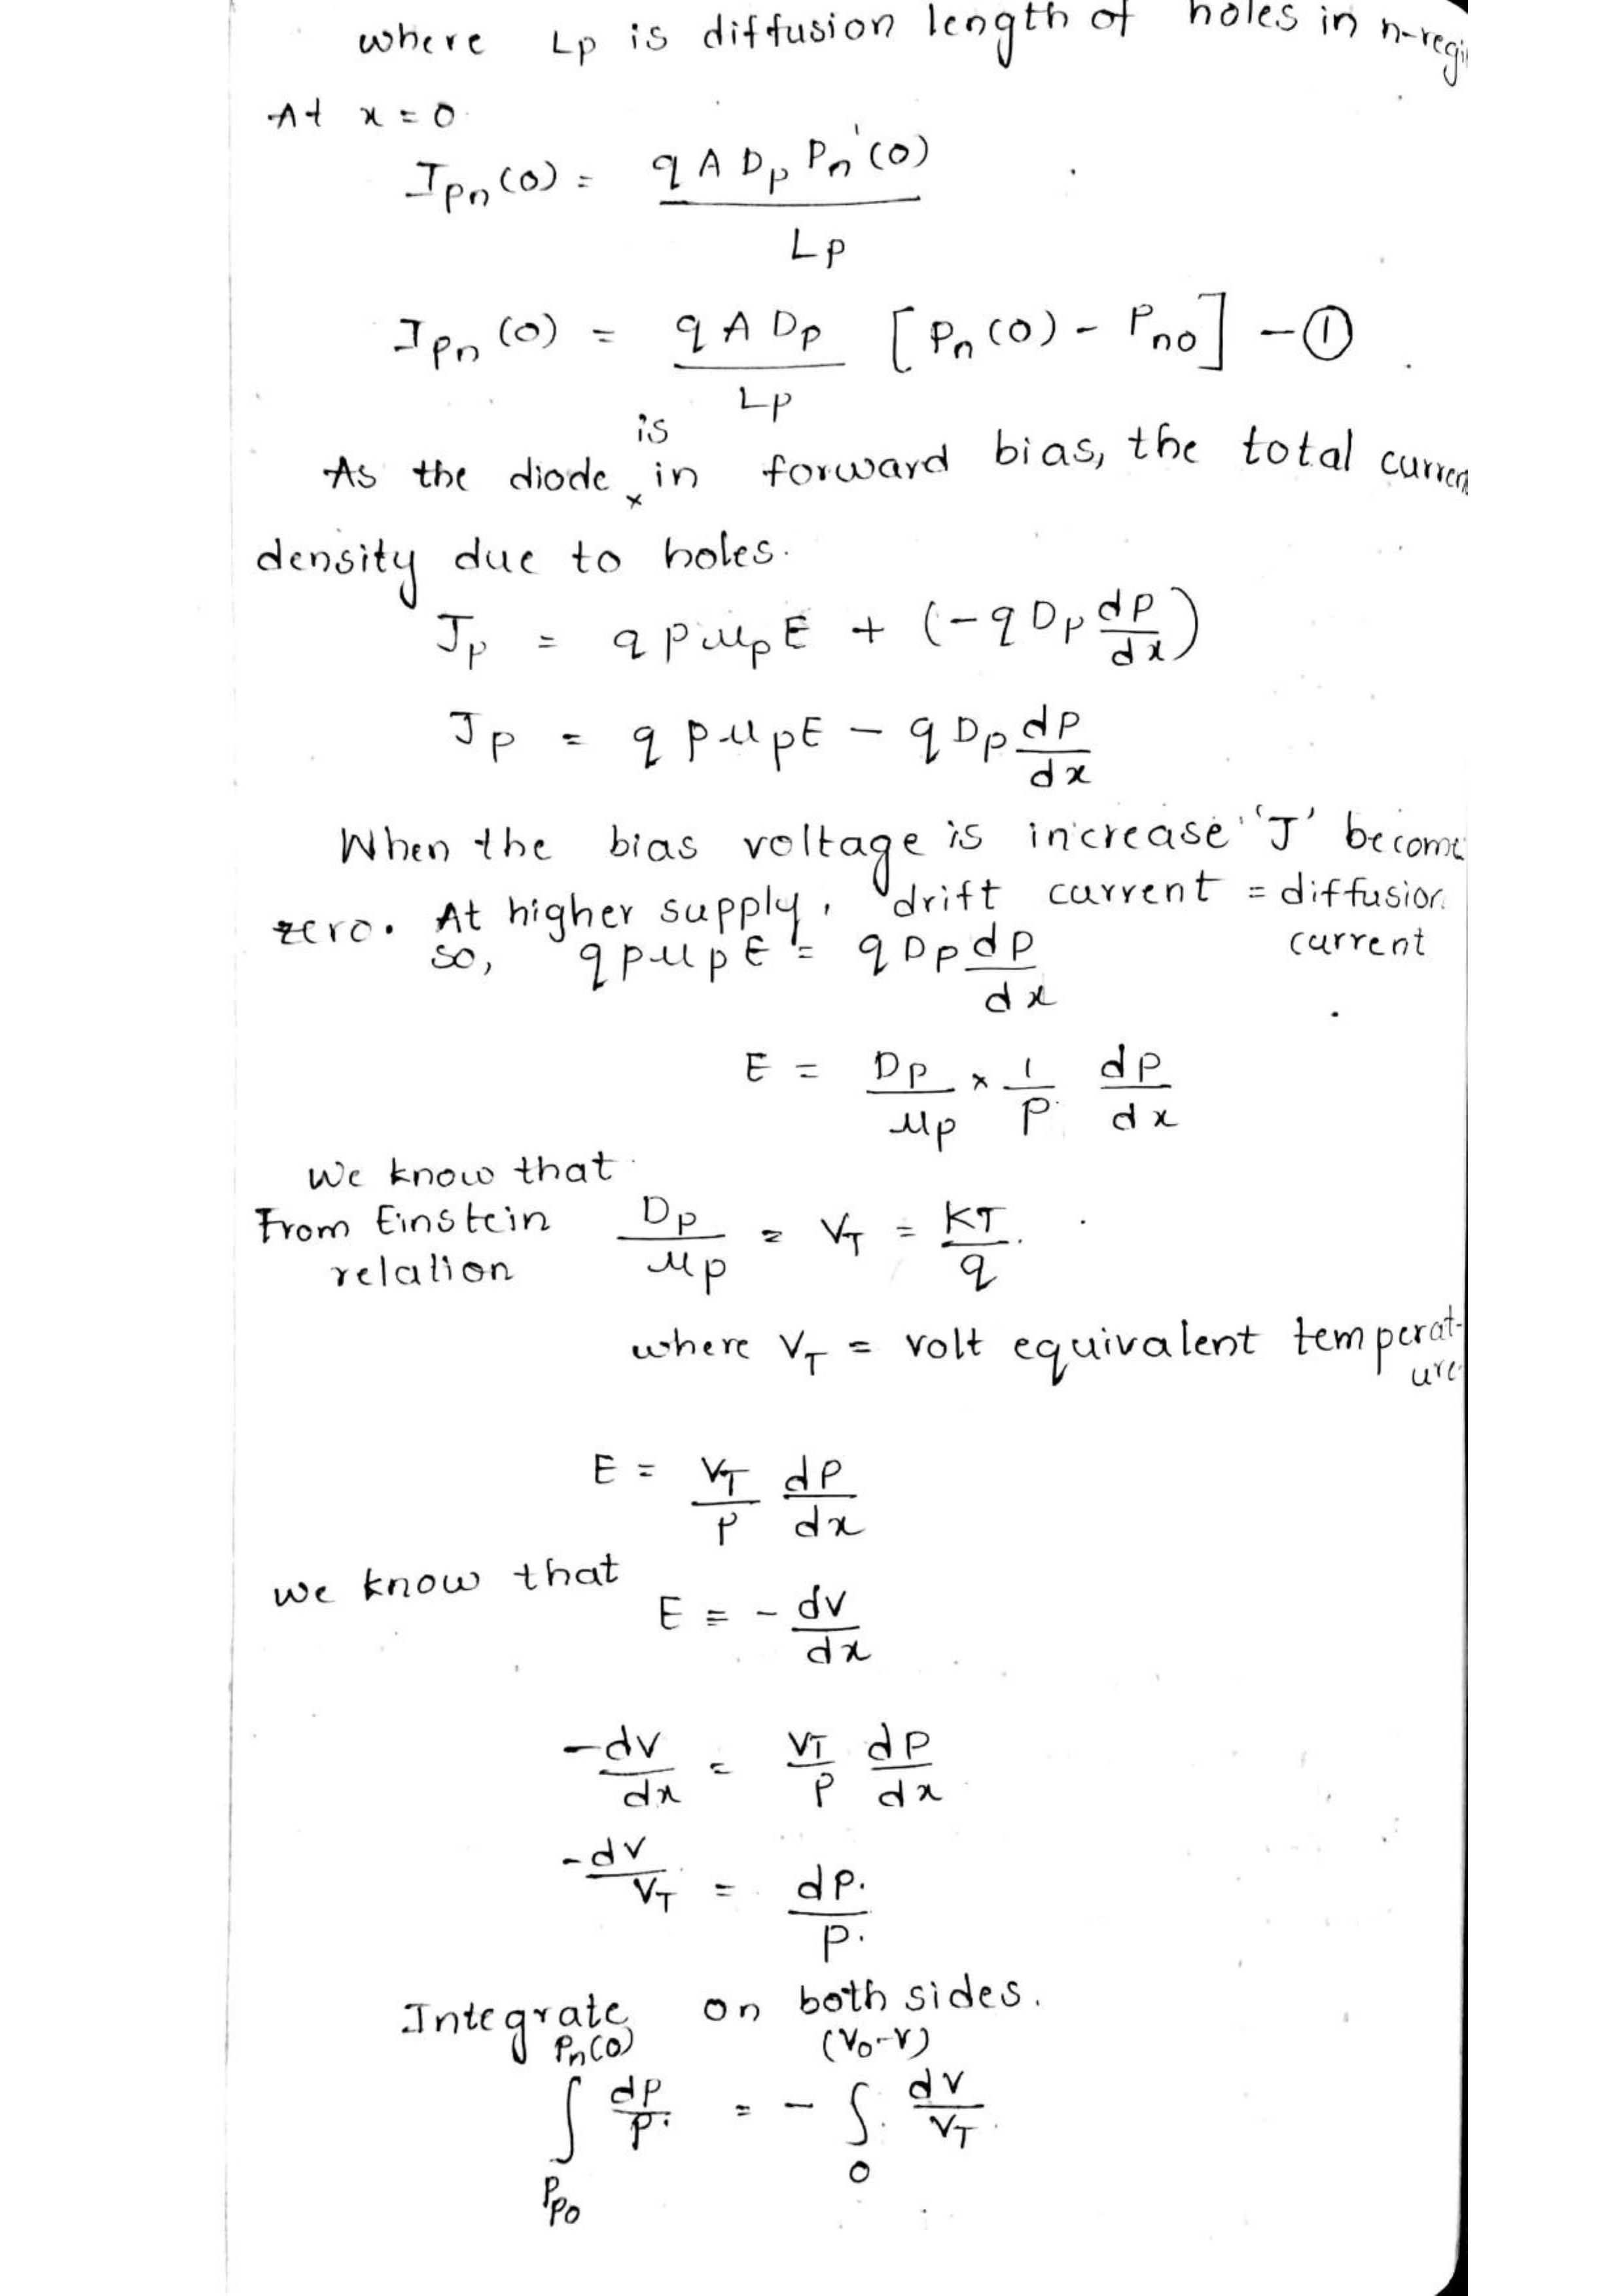 where Lp is diffusion length of holes in n-regi
At x = 0
Ipn(0) = q A Dp Pn'(0) / Lp
Ipn(0) = q A Dp / Lp [Pn(0) - Pno] - ①
As the diode is in forward bias, the total curren
density due to holes.
Jp = q p μp E + (-q Dp dp/dx)
Jp = q p μp E - q Dp dp/dx
When the bias voltage is increase 'J' become
zero. At higher supply, drift current = diffusion current
so, q p μp E = q Dp dp/dx
E = Dp/μp × 1/P dp/dx
We know that
From Einstein relation Dp/μp = VT = KT/q.
where VT = volt equivalent temperat-
ure
E = VT/P dp/dx
we know that
E = - dv/dx
-dv/dx = VT/P dp/dx
-dv/VT = dp./p.
Integrate on both sides.
∫_{Ppo}^{Pn(0)} dp/p. = - ∫_{0}^{(Vo-V)} dv/VT